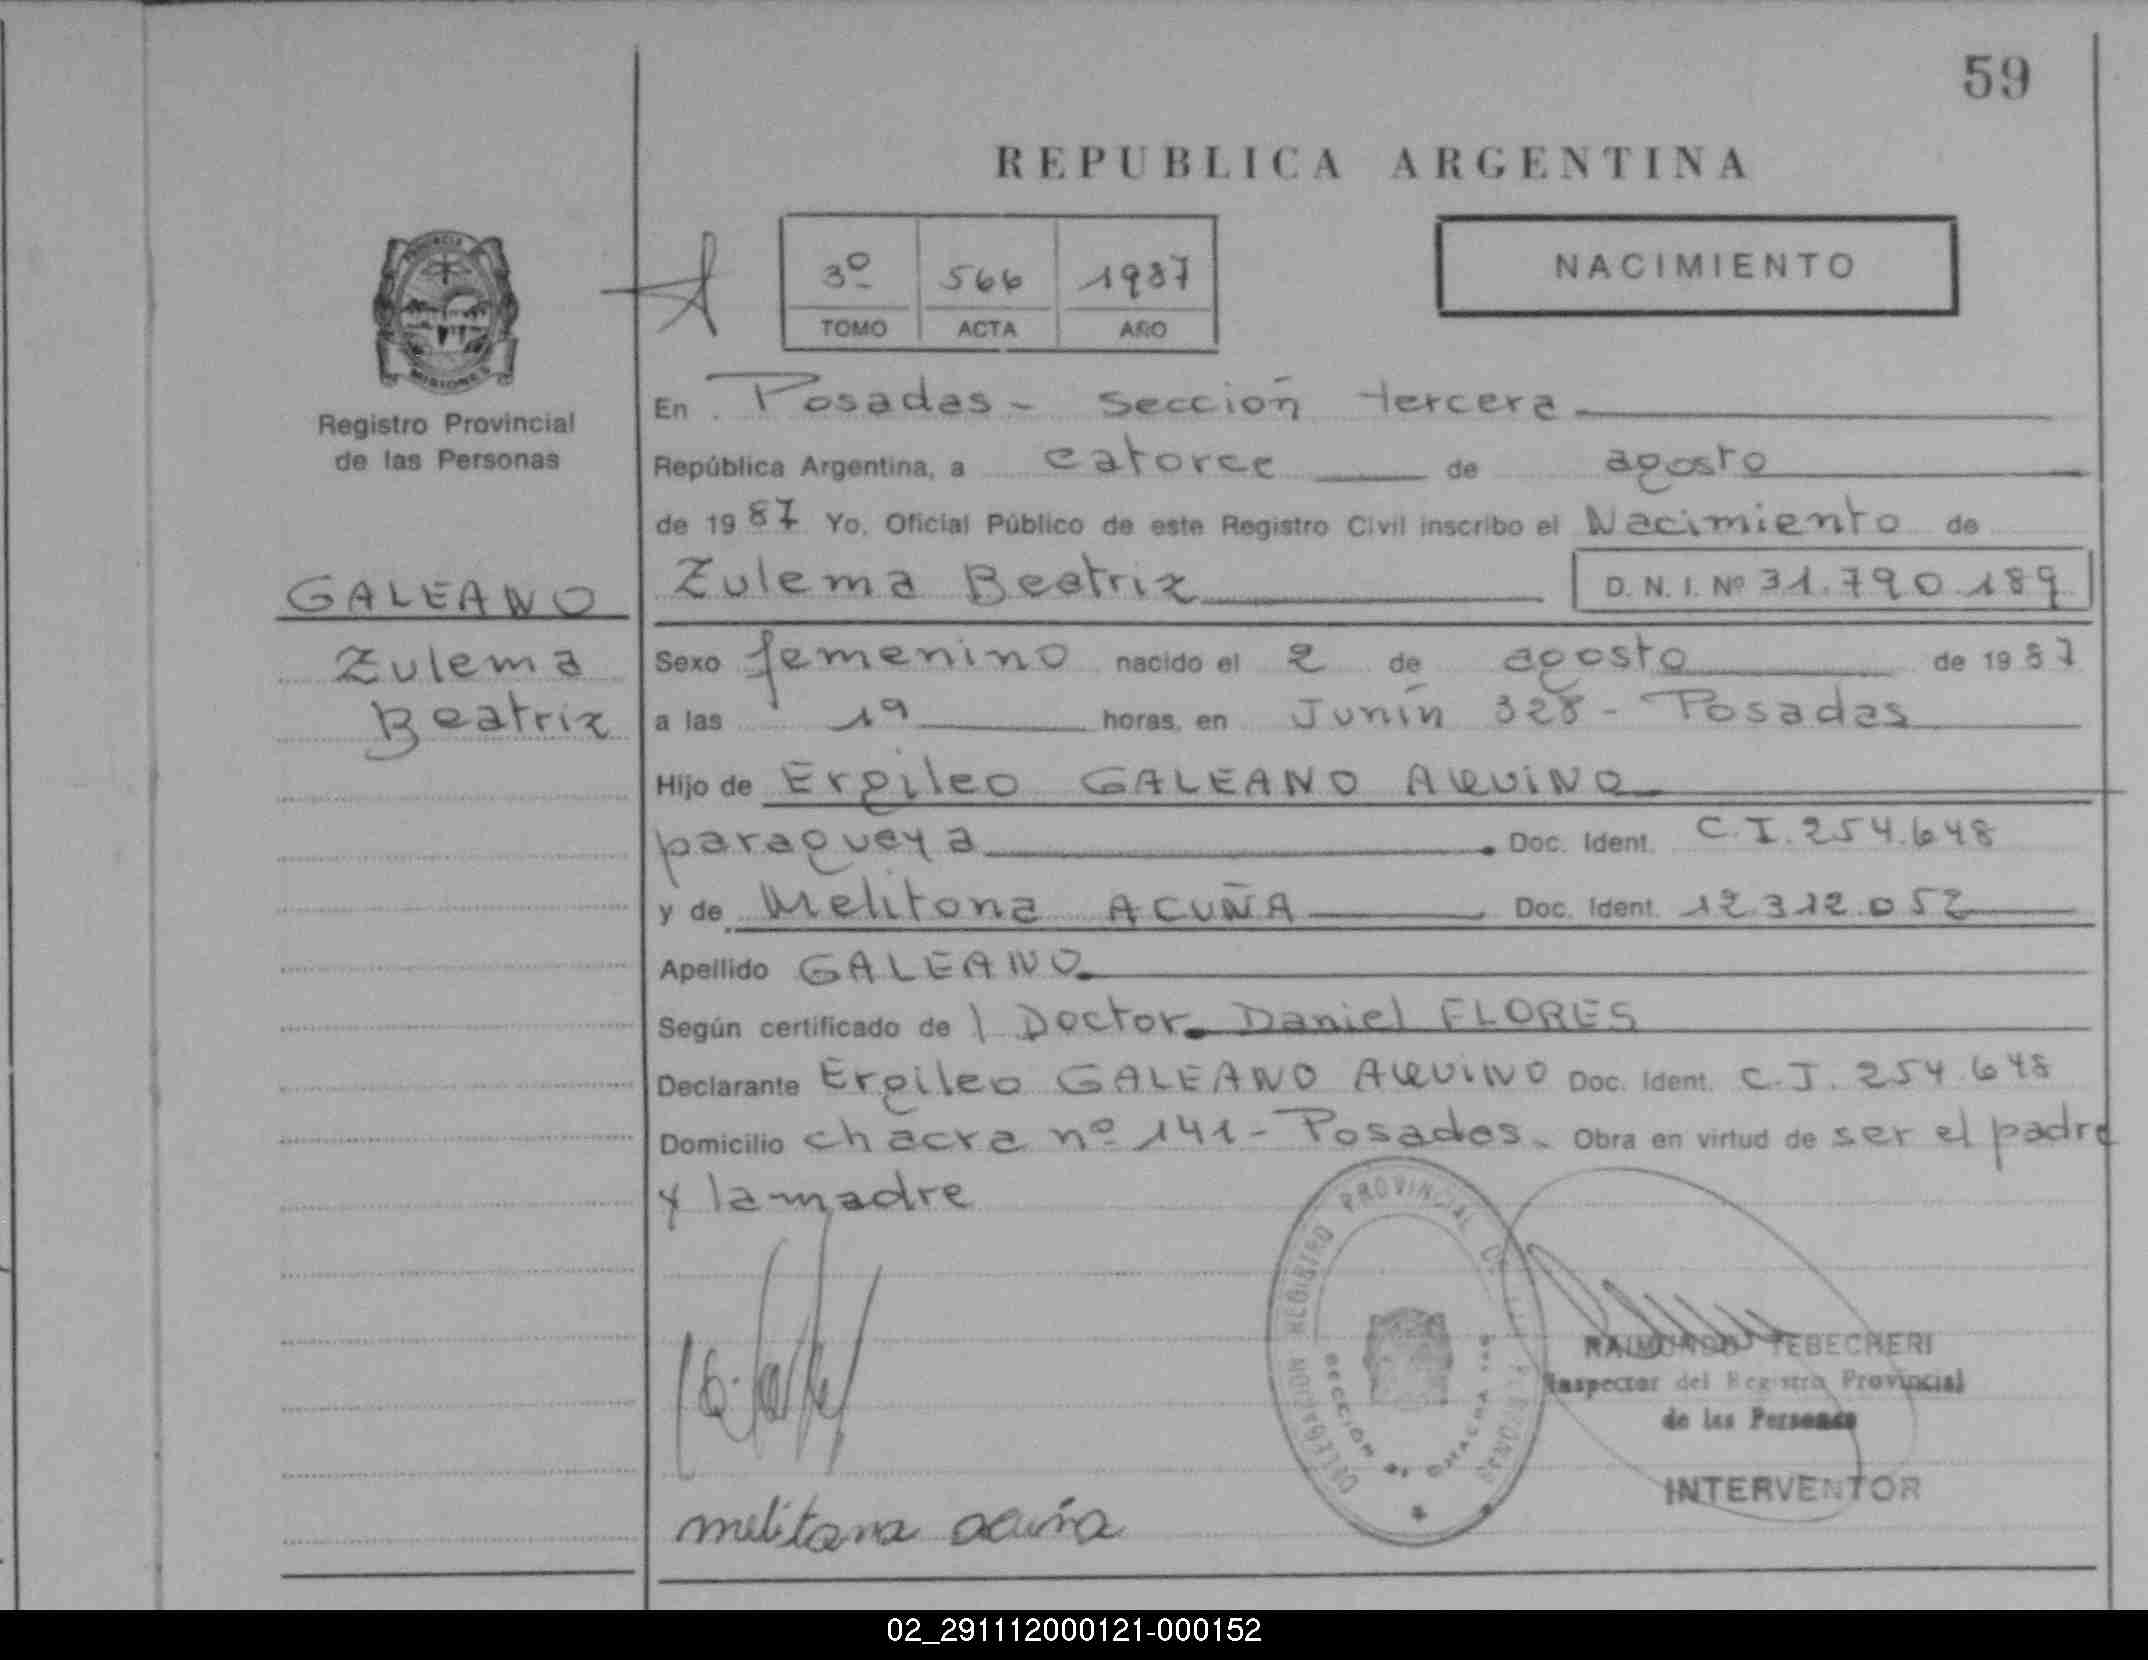 59
REPUBLICA ARGENTINA
3º 566 1987
TOMO ACTA AÑO
NACIMIENTO
MISIONES
Registro Provincial
de las Personas
En Posadas - Sección tercera
República Argentina, a catorce de agosto
de 1987 Yo, Oficial Público de este Registro Civil inscribo el Nacimiento de
GALEANO
Zulema
Beatriz
Zulema Beatriz D. N. I. Nº 31.790.189
Sexo femenino nacido el 2 de agosto de 1987
a las 19 horas, en Junín 328 - Posadas
Hijo de Ergileo GALEANO AQUINO
paraguaya Doc. Ident. C.I. 254.648
y de Melitona ACUÑA Doc. Ident. 12.312.052
Apellido GALEANO
Según certificado de l Doctor Daniel FLORES
Declarante Ergileo GALEANO AQUINO Doc. Ident. C.I. 254.648
Domicilio chacra nº 141 - Posadas - Obra en virtud de ser el padre
y la madre
DELEGACION REGISTRO PROVINCIAL DE LAS PERSONAS
RAIMUNDO TEBECHERI
Inspector del Registro Provincial
de las Personas
INTERVENTOR
melitona acuña
02_291112000121-000152